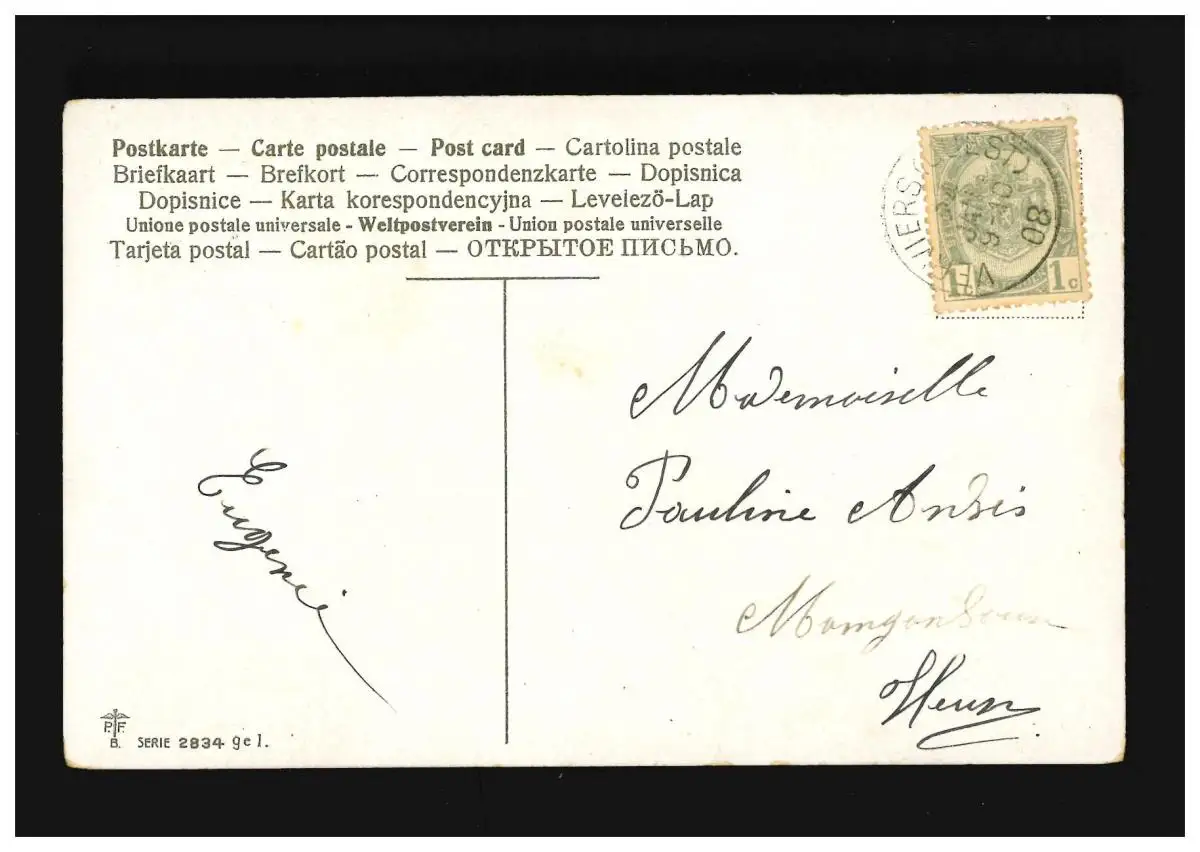 Postkarte — Carte postale — Post card — Cartolina postale
Briefkaart — Brefkort — Correspondenzkarte — Dopisnica
Dopisnice — Karta korespondencyjna — Levelezö-Lap
Unione postale universale - Weltpostverein - Union postale universelle
Tarjeta postal — Cartão postal — ОТКРЫТОЕ ПИСЬМО.
08
1c 1c
Mademoiselle
Pauline
Eugenie
P.F.
B. SERIE 2834 gel.